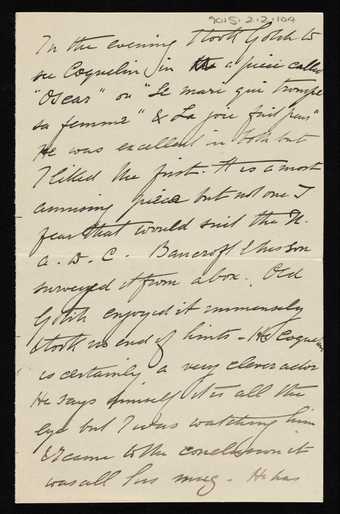 9015-2-2-104
In the evening I took Gotch to
see Coquelin in a piece called
"Oscar" ou "Le mari qui trompe
sa femme" & La joie fait peur"
He was excellent in both but
I liked the first. It is a most
amusing piece but not one I
fear that would suit the N.
A. D. C. Bancroft & his son
surveyed it from a box. Old
Gotch enjoyed it immensely
& took no end of hints - Coquelin
is certainly a very clever actor
He says himself it is all the
eye but I was watching him
& I came to the conclusion it
was all his mug. He has